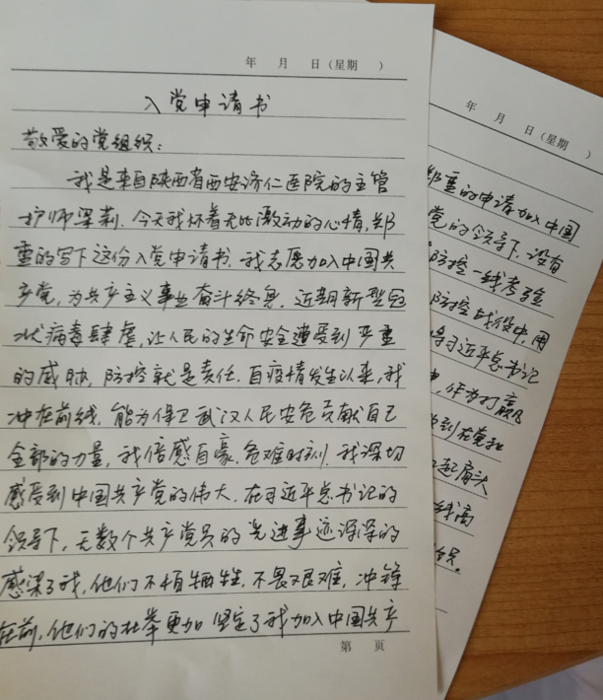 年 月 日（星期 ）
入党申请书
敬爱的党组织：
我是来自陕西省西安济仁医院的主管
护师梁莉. 今天我怀着无比激动的心情,郑
重的写下这份入党申请书. 我志愿加入中国共
产党, 为共产主义事业奋斗终身. 近期新型冠
状病毒肆虐, 让人民的生命安全遭受到严重
的威胁, 防控就是责任. 自疫情发生以来, 我
冲在前线, 能为保卫武汉人民安危贡献自己
全部的力量, 我倍感自豪. 危难时刻. 我深切
感受到中国共产党的伟大. 在习近平总书记的
领导下, 无数个共产党员的先进事迹深深的
感染了我, 他们不惧牺牲, 不畏艰难, 冲锋
在前, 他们的壮举更加坚定了我加入中国共产
第 页
年 月 日（星期 ）
郑重的申请加入中国
党的领导下, 没有
防控一线考验
防控战役中, 用
习近平总书记
, 作为打赢
到在党和
起肩头
线高